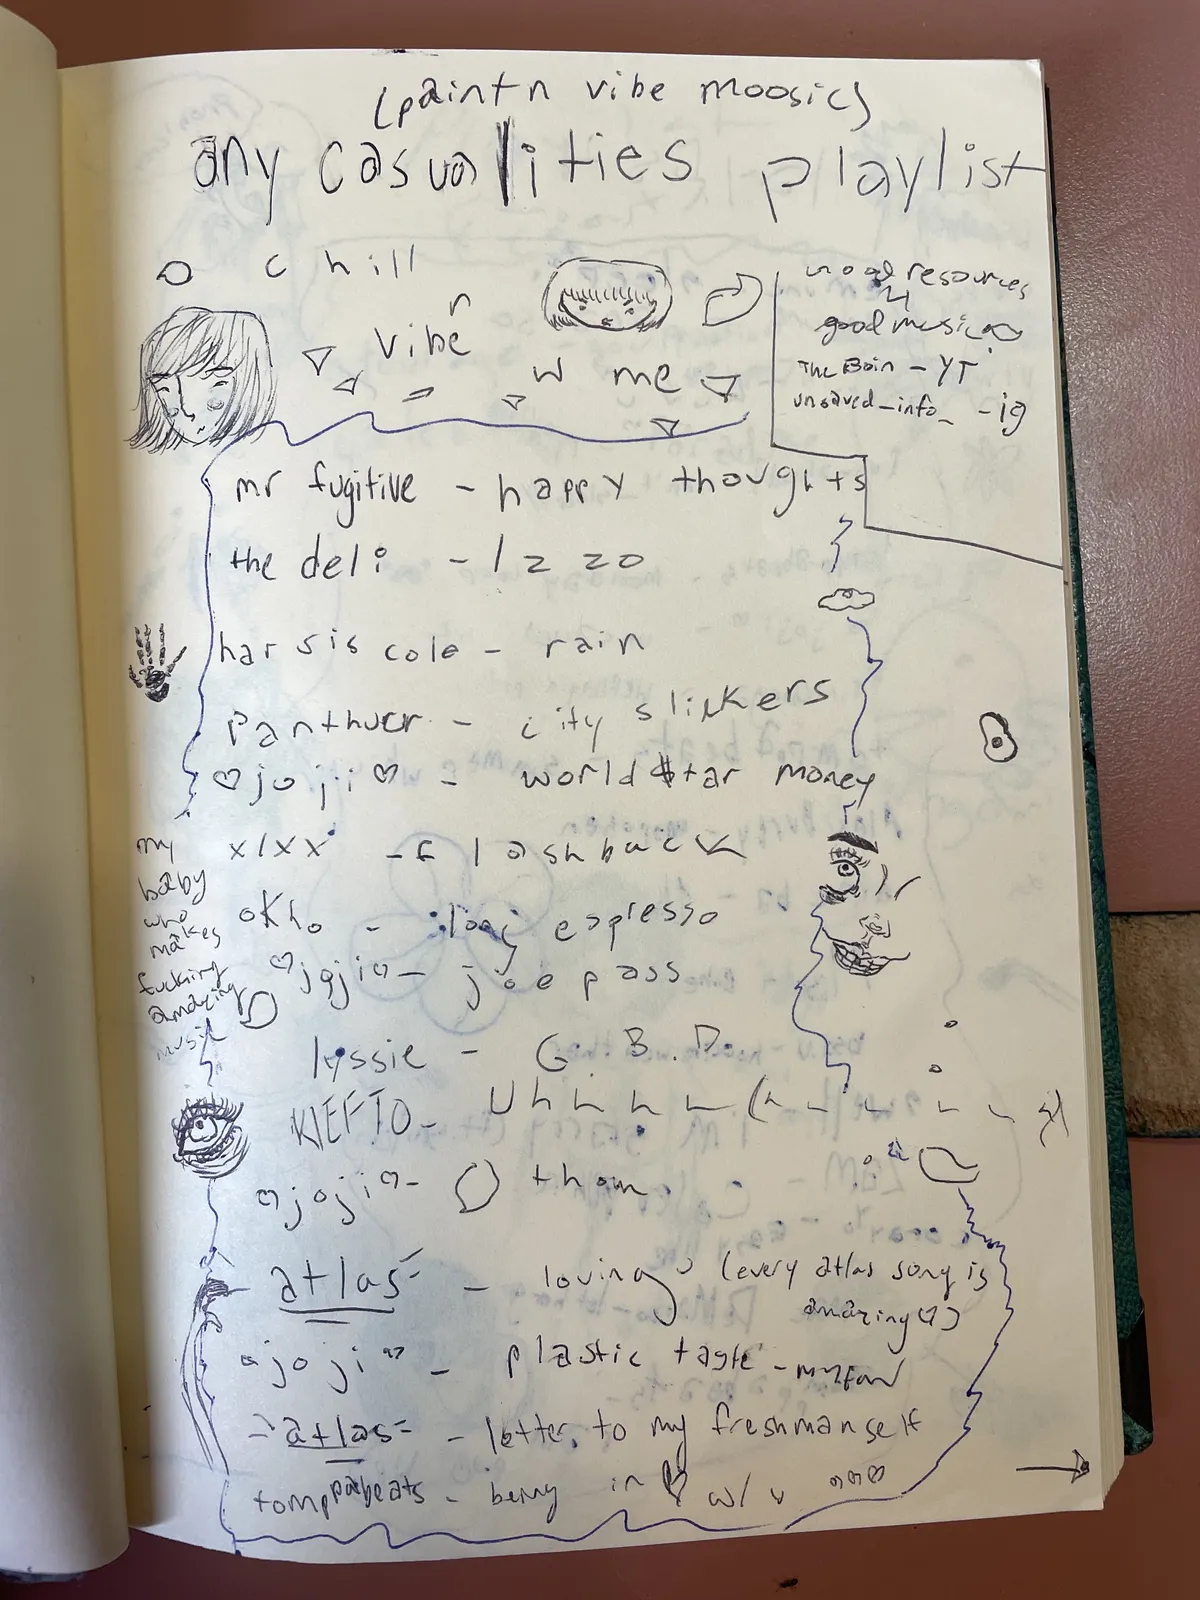 (paint n vibe moosic)
any casualities playlist
chill
n
vibe
w me
good resources
4
good music
The Boin - YT
unsaved_info_ - ig
mr fugitive - happy thoughts
the deli - 1 z z z o
harsis cole - rain
Panthucr - city slickers
♡joji♡ - world$tar money
xlxx - flashback
okho - long espresso
♡joji♡ - joe pass
lyssie - G.B.D.
KIEFTO - Uhhhh
♡joji♡ - thom
atlas - loving (every atlas song is
amazing♡)
joji♡ - plastic taste - my fav
-atlas- - letter to my freshman self
tomppabeats - being in ♡ w/ u ♡♡♡
my
baby
who
makes
fucking
amazing
music